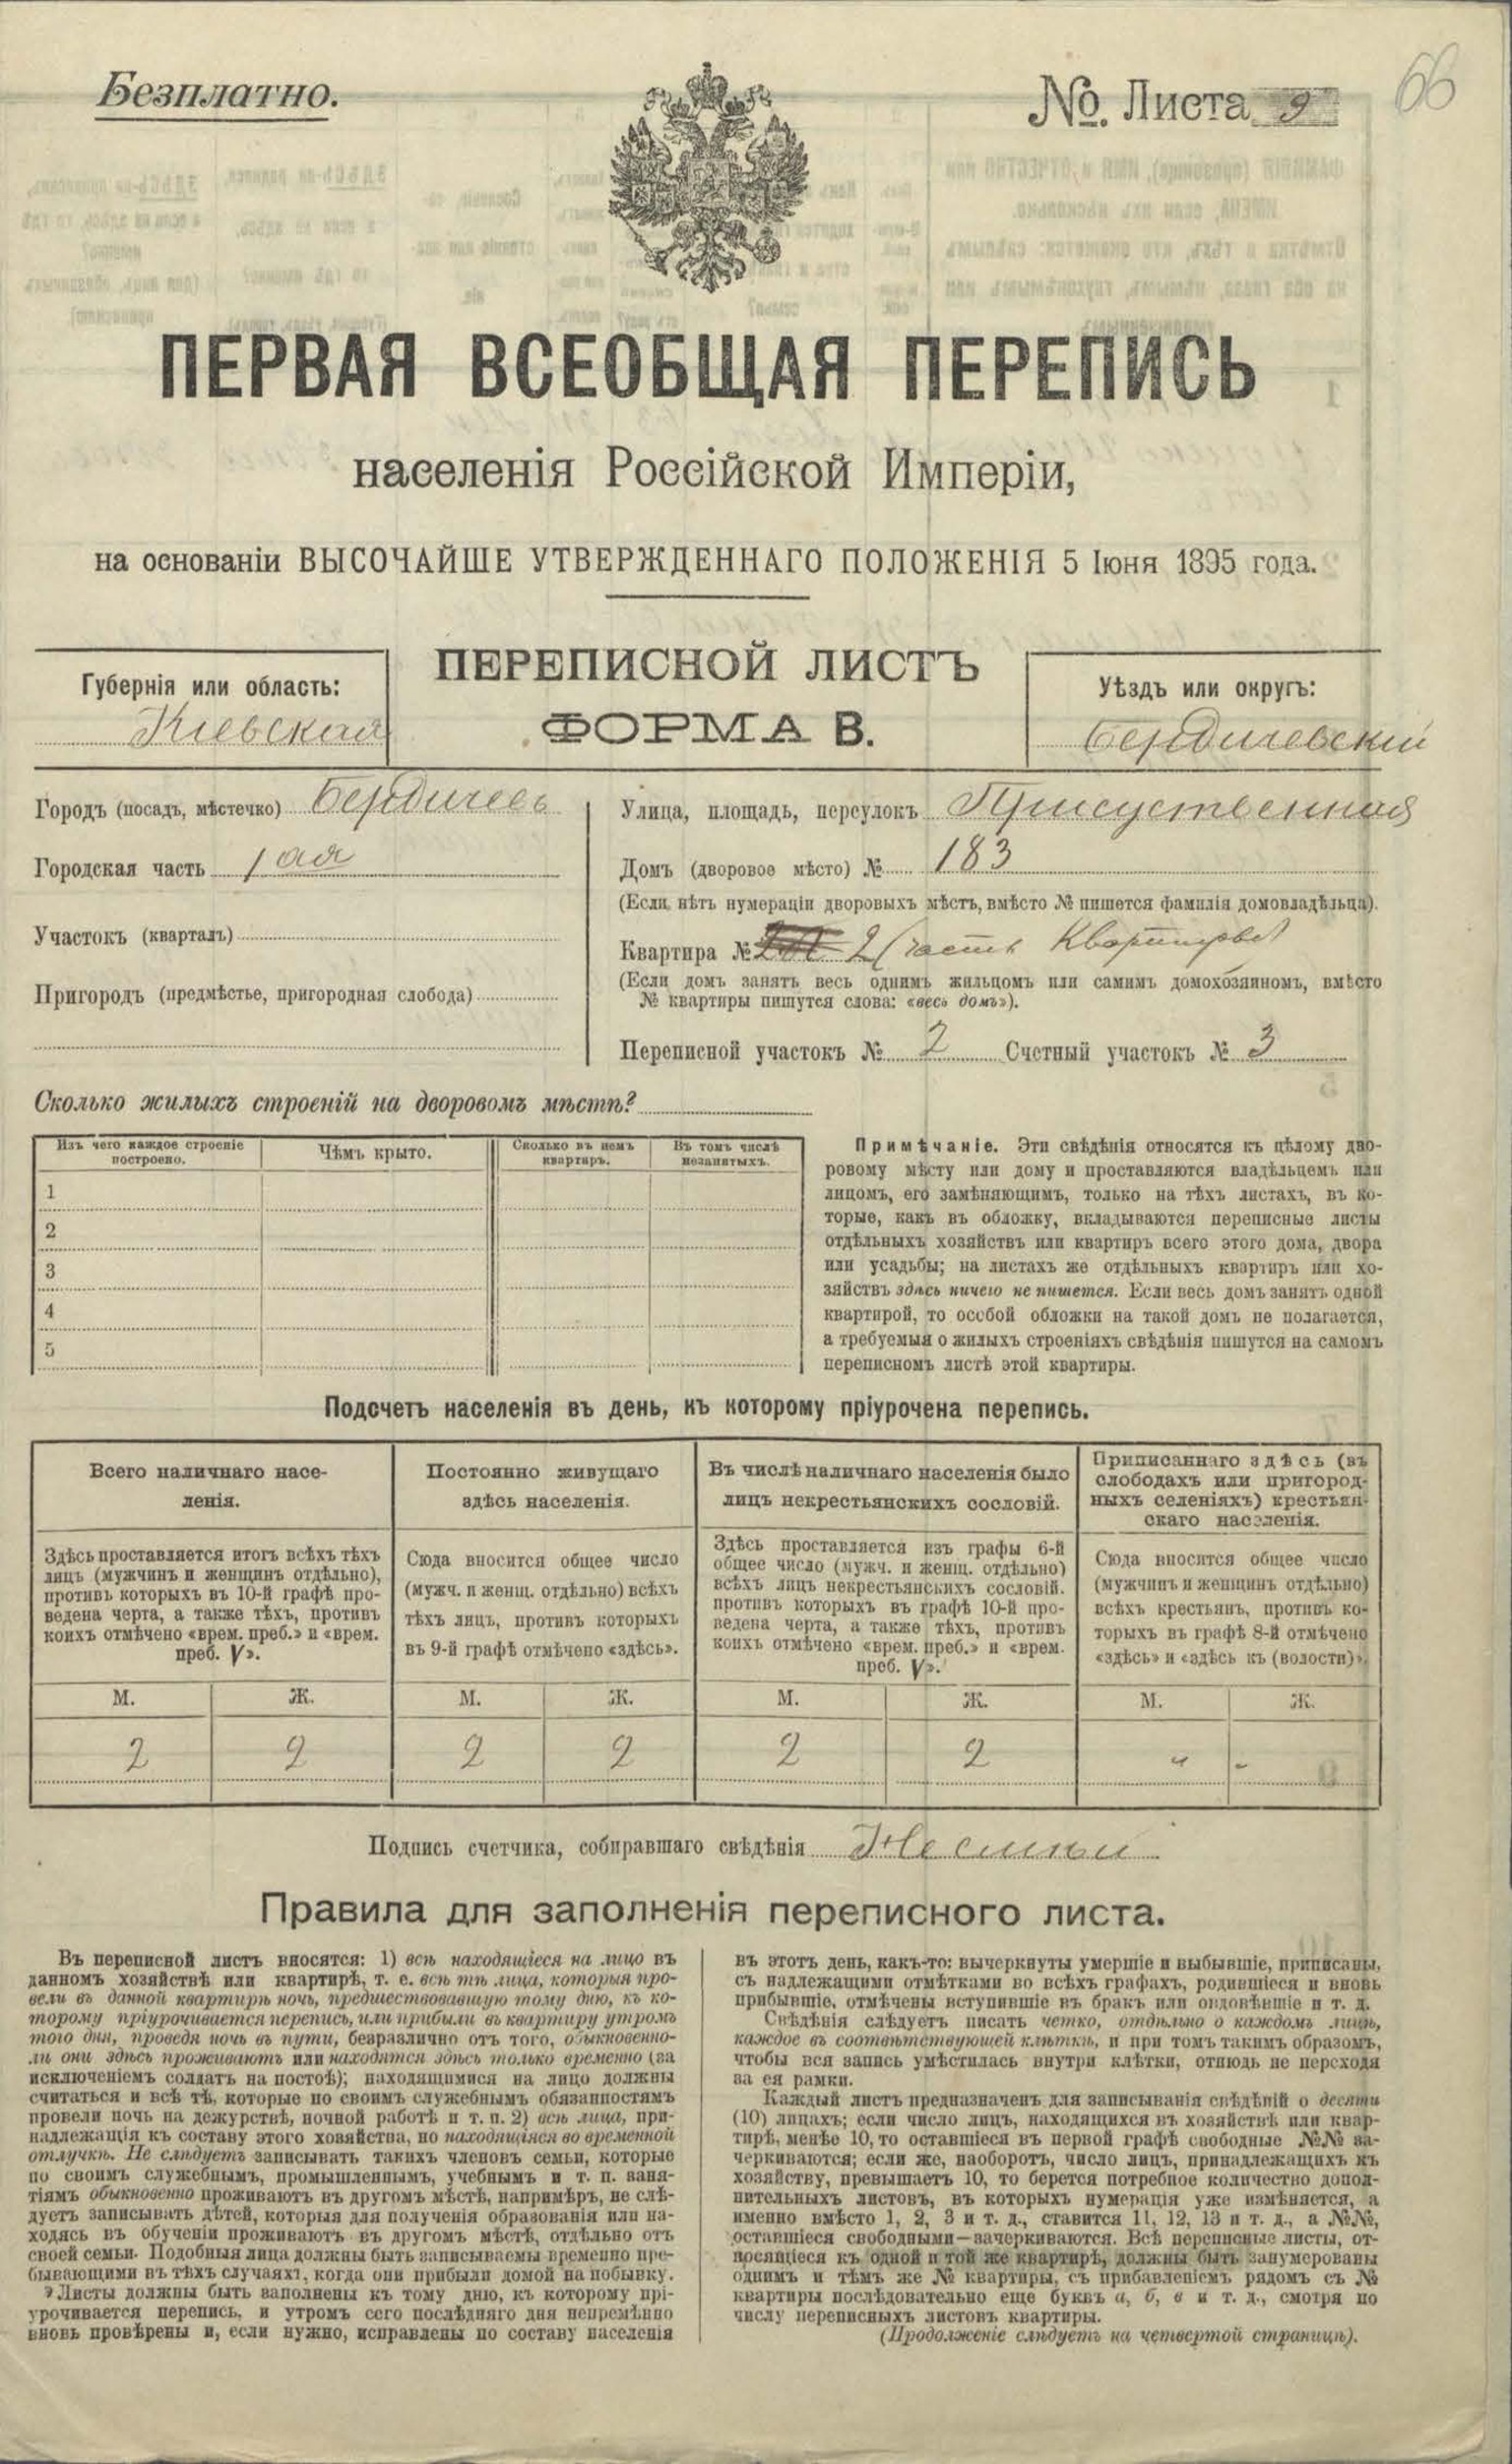 Безплатно.
№. Листа 9
66
ПЕРВАЯ ВСЕОБЩАЯ ПЕРЕПИСЬ
населенія Россійской Имперіи,
на основаніи ВЫСОЧАЙШЕ УТВЕРЖДЕННАГО ПОЛОЖЕНІЯ 5 Іюня 1895 года.
Губернія или область:
Кіевская
ПЕРЕПИСНОЙ ЛИСТЪ
ФОРМА В.
Уѣздъ или округъ:
Бердичевскій
Городъ (посадъ, мѣстечко) Бердичевъ
Городская часть 1ая
Участокъ (кварталъ)
Пригородъ (предмѣстье, пригородная слобода)
Улица, площадь, переулокъ Присуственная
Домъ (дворовое мѣсто) № 183
(Если нѣтъ нумераціи дворовыхъ мѣстъ, вмѣсто № пишется фамилія домовладѣльца).
Квартира № 2 (часть квартиры)
(Если домъ занятъ весь однимъ жильцомъ или самимъ домохозяиномъ, вмѣсто
№ квартиры пишутся слова: «весь домъ»).
Переписной участокъ № 2 Счетный участокъ № 3
Сколько жилыхъ строеній на дворовомъ мѣстѣ?
Изъ чего каждое строеніе
построено.
Чѣмъ крыто.
Сколько въ немъ
квартиръ.
Въ томъ числѣ
незанятыхъ.
1
2
3
4
5
Примѣчаніе. Эти свѣдѣнія относятся къ цѣлому дво-
ровому мѣсту или дому и проставляются владѣльцемъ или
лицомъ, его замѣняющимъ, только на тѣхъ листахъ, въ ко-
торые, какъ въ обложку, вкладываются переписные листы
отдѣльныхъ хозяйствъ или квартиръ всего этого дома, двора
или усадьбы; на листахъ же отдѣльныхъ квартиръ или хо-
зяйствъ здѣсь ничего не пишется. Если весь домъ занятъ одной
квартирой, то особой обложки на такой домъ не полагается,
а требуемыя о жилыхъ строеніяхъ свѣдѣнія пишутся на самомъ
переписномъ листѣ этой квартиры.
Подсчетъ населенія въ день, къ которому пріурочена перепись.
Всего наличнаго насе-
ленія.
Постоянно живущаго
здѣсь населенія.
Въ числѣ наличнаго населенія было
лицъ некрестьянскихъ сословій.
Приписаннаго здѣсь (въ
слободахъ или пригород-
ныхъ селеніяхъ) крестьян-
скаго населенія.
Здѣсь проставляется итогъ всѣхъ тѣхъ
лицъ (мужчинъ и женщинъ отдѣльно),
противъ которыхъ въ 10-й графѣ про-
ведена черта, а также тѣхъ, противъ
коихъ отмѣчено «врем. преб.» и «врем.
преб. V».
Сюда вносится общее число
(мужч. и женщ. отдѣльно) всѣхъ
тѣхъ лицъ, противъ которыхъ
въ 9-й графѣ отмѣчено «здѣсь».
Здѣсь проставляется изъ графы 6-й
общее число (мужч. и женщ. отдѣльно)
всѣхъ лицъ некрестьянскихъ сословій.
противъ которыхъ въ графѣ 10-й про-
ведена черта, а также тѣхъ, противъ
коихъ отмѣчено «врем. преб.» и «врем.
преб. V».
Сюда вносится общее число
(мужчинъ и женщинъ отдѣльно)
всѣхъ крестьянъ, противъ ко-
торыхъ въ графѣ 8-й отмѣчено
«здѣсь» и «здѣсь къ (волости)».
М. Ж. М. Ж. М. Ж. М. Ж.
2 2 2 2 2 2 " -
Подпись счетчика, собиравшаго свѣдѣнія
Правила для заполненія переписного листа.
Въ переписной листъ вносятся: 1) всѣ находящіеся на лицо въ
данномъ хозяйствѣ или квартирѣ, т. е. всѣ тѣ лица, которыя про-
вели въ данной квартирѣ ночь, предшествовавшую тому дню, къ ко-
торому пріурочивается перепись, или прибыли въ квартиру утромъ
того дня, проведя ночь въ пути, безразлично отъ того, обыкновенно-
ли они здѣсь проживаютъ или находятся здѣсь только временно (за
исключеніемъ солдатъ на постоѣ); находящимися на лицо должны
считаться и всѣ тѣ, которые по своимъ служебнымъ обязанностямъ
провели ночь на дежурствѣ, ночной работѣ и т. п. 2) всѣ лица, при-
надлежащія къ составу этого хозяйства, но находящіяся во временной
отлучкѣ. Не слѣдуетъ записывать такихъ членовъ семьи, которые
по своимъ служебнымъ, промышленнымъ, учебнымъ и т. п. заня-
тіямъ обыкновенно проживаютъ въ другомъ мѣстѣ, напримѣръ, не слѣ-
дуетъ записывать дѣтей, которыя для полученія образованія или на-
ходясь въ обученіи проживаютъ въ другомъ мѣстѣ, отдѣльно отъ
своей семьи. Подобныя лица должны быть записываемы временно пре-
бывающими въ тѣхъ случаяхъ, когда они прибыли домой на побывку.
Листы должны быть заполнены къ тому дню, къ которому прі-
урочивается перепись, и утромъ сего послѣдняго дня непремѣнно
вновь провѣрены и, если нужно, исправлены по составу населенія
въ этотъ день, какъ-то: вычеркнуты умершіе и выбывшіе, приписаны,
съ надлежащими отмѣтками во всѣхъ графахъ, родившіеся и вновь
прибывшіе, отмѣчены вступившіе въ бракъ или овдовѣвшіе и т. д.
Свѣдѣнія слѣдуетъ писать четко, отдѣльно о каждомъ лицѣ,
каждое въ соотвѣтствующей клѣткѣ, и при томъ такимъ образомъ,
чтобы вся запись умѣстилась внутри клѣтки, отнюдь не переходя
за ея рамки.
Каждый листъ предназначенъ для записыванія свѣдѣній о десяти
(10) лицахъ; если число лицъ, находящихся въ хозяйствѣ или квар-
тирѣ, менѣе 10, то оставшіеся въ первой графѣ свободные №№ за-
черкиваются; если же, наоборотъ, число лицъ, принадлежащихъ къ
хозяйству, превышаетъ 10, то берется потребное количество допол-
нительныхъ листовъ, въ которыхъ нумерація уже измѣняется, а
именно вмѣсто 1, 2, 3 и т. д., ставится 11, 12, 13 и т. д., а №№,
оставшіеся свободными—зачеркиваются. Всѣ переписные листы, от-
носящіеся къ одной и той же квартирѣ, должны быть занумерованы
однимъ и тѣмъ же № квартиры, съ прибавленіемъ рядомъ съ №
квартиры послѣдовательно еще буквъ а, б, в и т. д., смотря по
числу переписныхъ листовъ квартиры.
(Продолженіе слѣдуетъ на четвертой страницѣ).